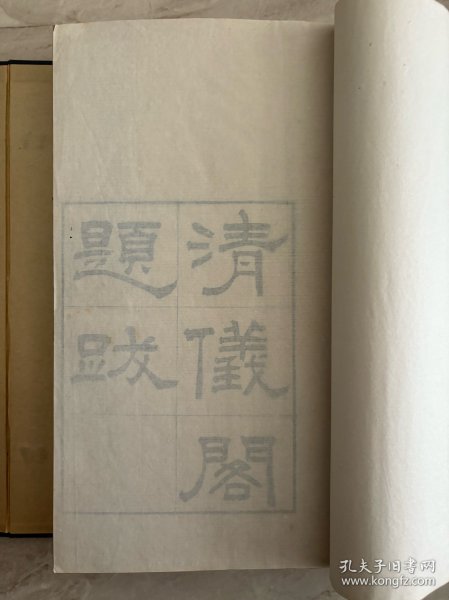 清儀閣
題跋
孔夫子旧书网
www.kongfz.com